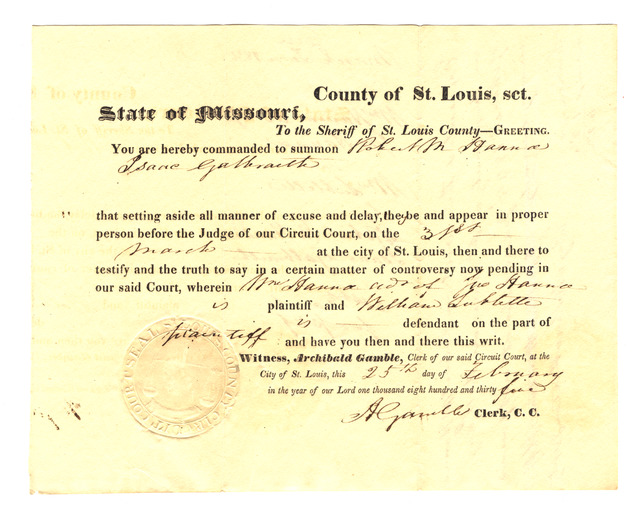 County of St. Louis, sct.
State of Missouri,
To the Sheriff of St. Louis County—GREETING.
You are hereby commanded to summon Robert M Hanna
Isaac Galbraith
that setting aside all manner of excuse and delay, they be and appear in proper
person before the Judge of our Circuit Court, on the 31st
March at the city of St. Louis, then and there to
testify and the truth to say in a certain matter of controversy now pending in
our said Court, wherein Wm Hanna of Hanna
is plaintiff and William Sublette
is defendant on the part of
plaintiff and have you then and there this writ.
Witness, Archibald Gamble, Clerk of our said Circuit Court, at the
City of St. Louis, this 25th day of February
in the year of our Lord one thousand eight hundred and thirty five
A Gamble Clerk, C. C.